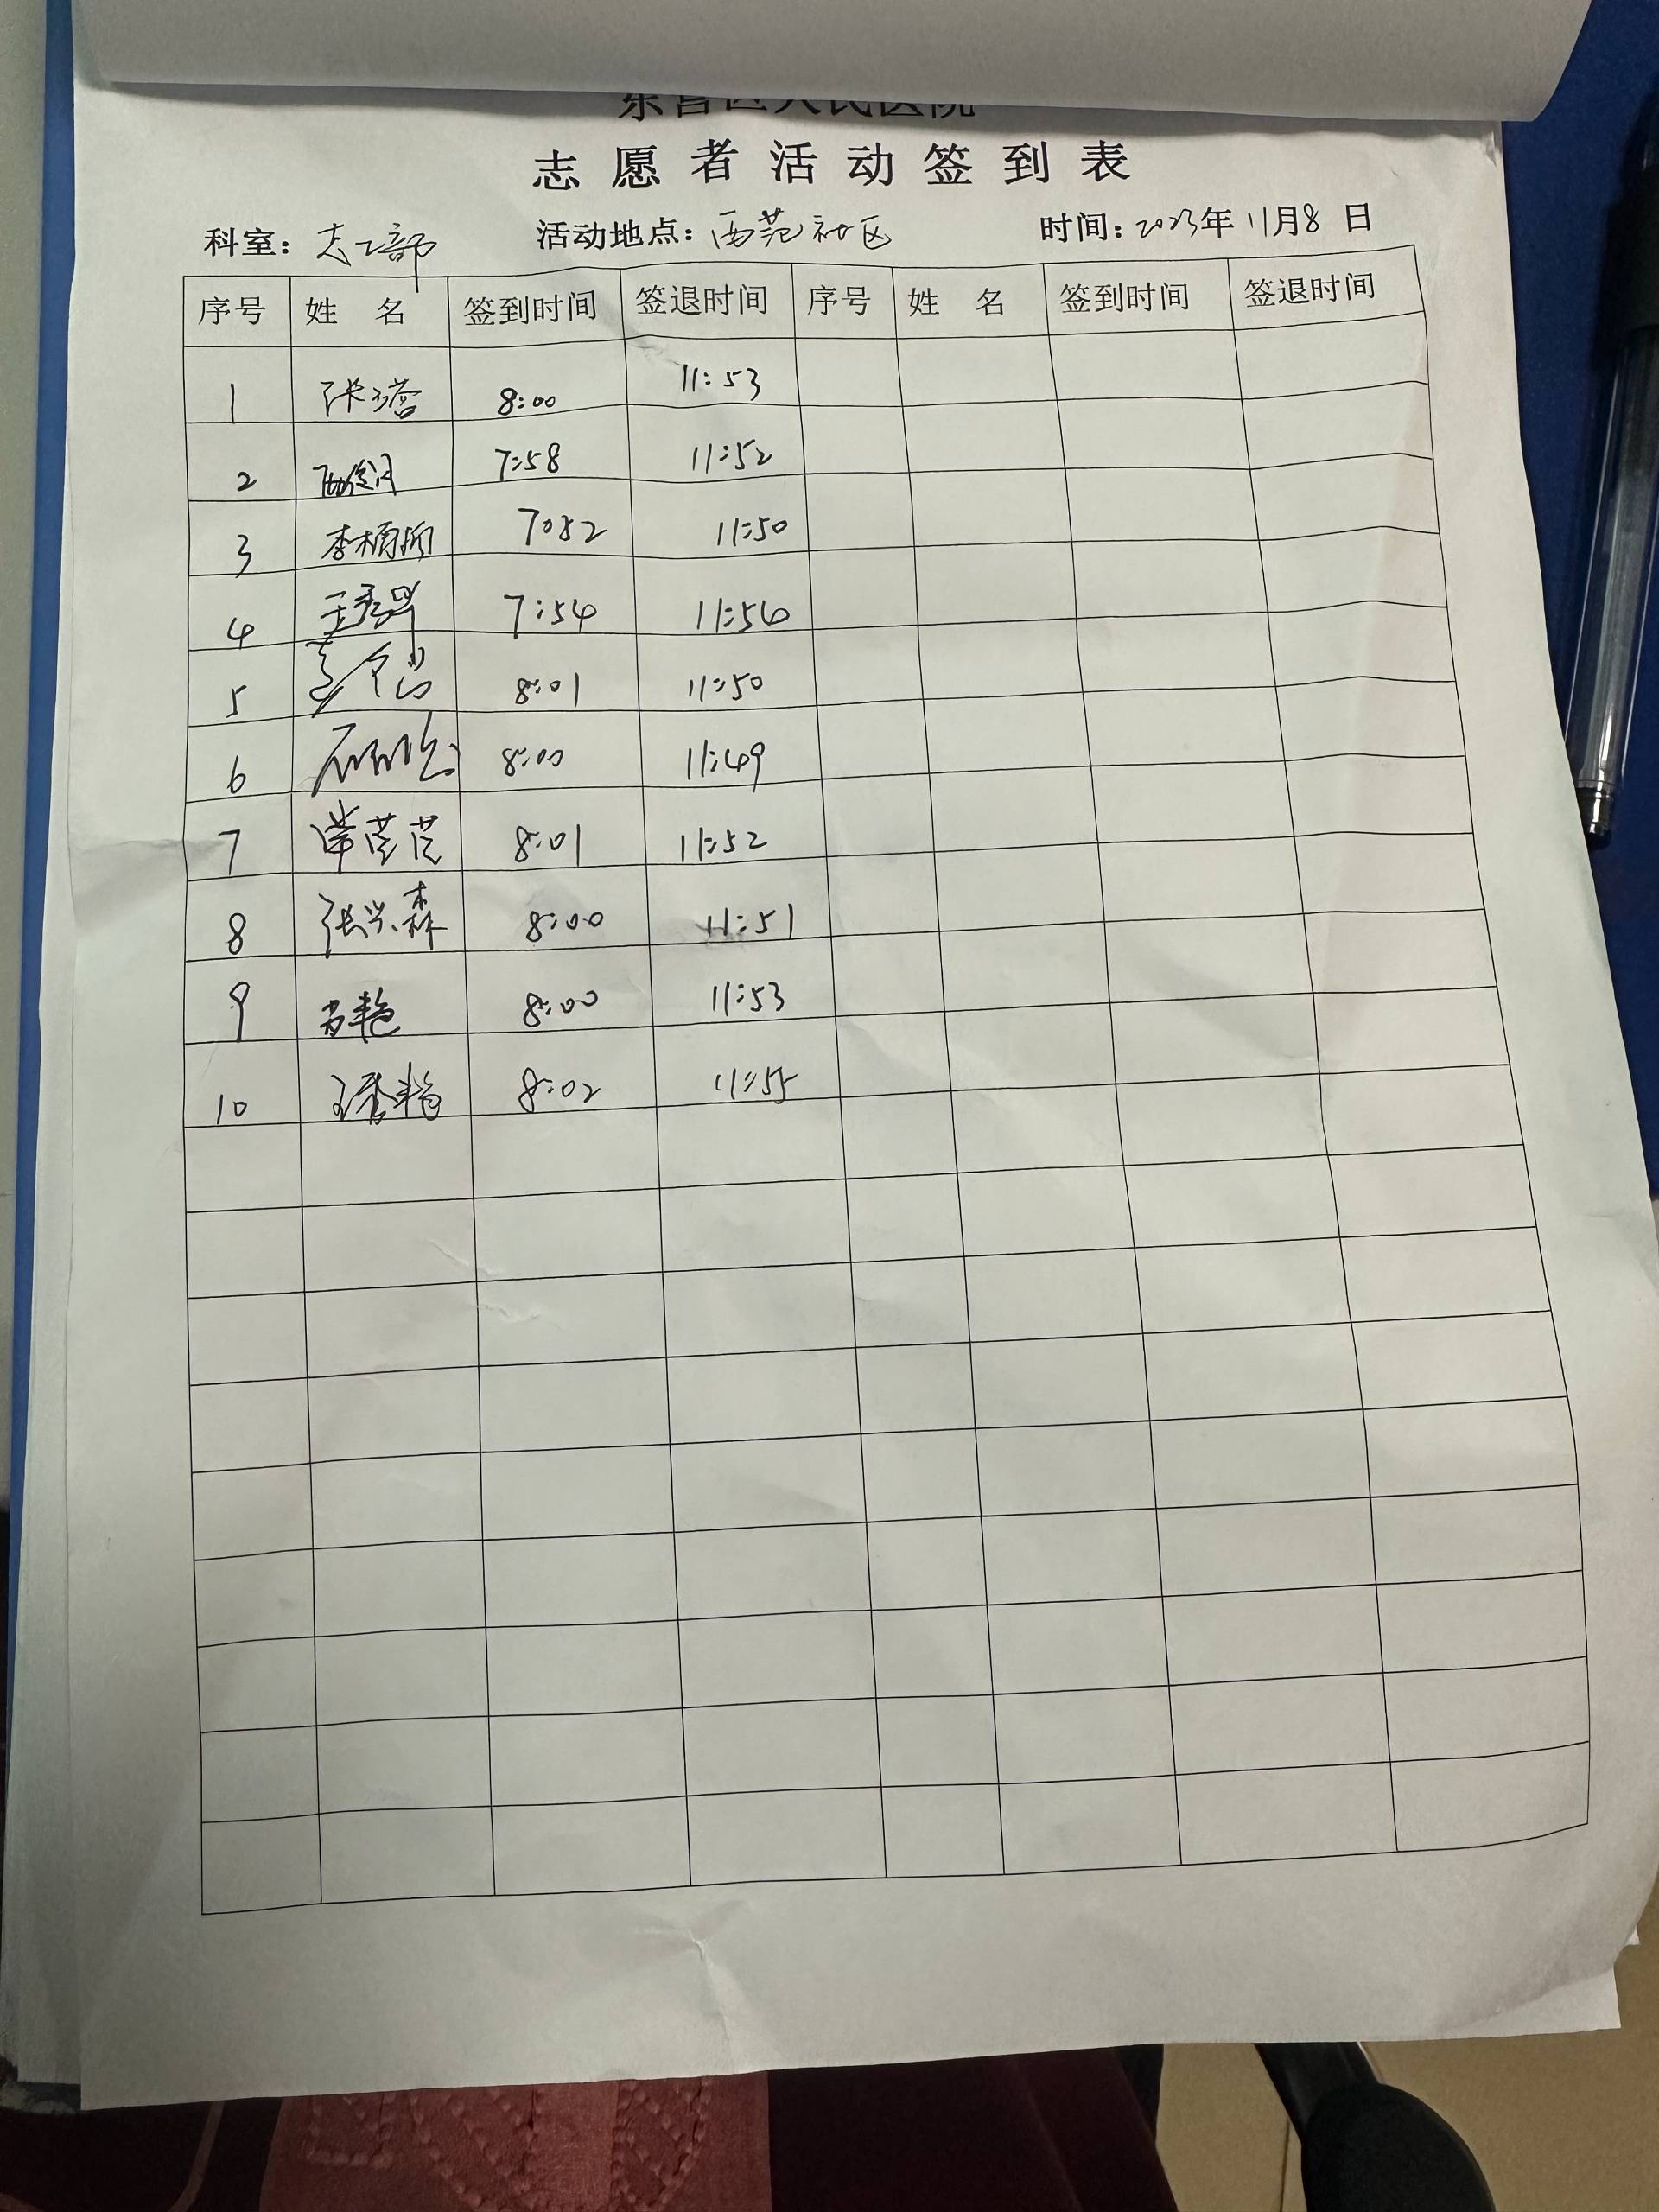 东营区人民医院
志愿者活动签到表
科室: 志工部 活动地点: 西苑社区 时间: 2023年11月8日
序号 姓 名 签到时间 签退时间 序号 姓 名 签到时间 签退时间
1 8:00 11:53
2 7:58 11:52
3 7:52 11:50
4 7:54 11:54
5 8:01 11:50
6 8:00 11:49
7 8:01 11:52
8 张兴森 8:00 11:51
9 8:00 11:53
10 8:02 11:55